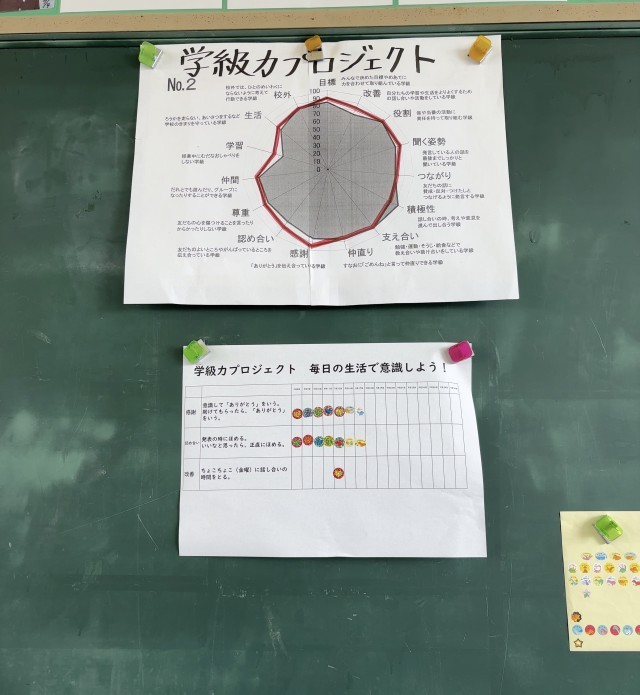 学級力プロジェクト
No.2
目標
みんなで決めた目標やめあてに
力を合わせて取り組んでいる学級
改善
自分たちの学習や生活をよりよくするため
の話し合いや活動をしている学級
役割
係や当番の活動に
責任を持って取り組む学級
聞く姿勢
発言している人の話を
最後までしっかりと
聞いている学級
つながり
友だちの話に
賛成・反対・つけたしと
つなげるように発言する学級
積極性
話し合いの時、考えや意見を
進んで出し合う学級
支え合い
勉強・運動・そうじ・給食などで
教え合いや助け合いをしている学級
仲直り
すなおに「ごめんね」と言って仲直りできる学級
感謝
「ありがとう」を伝え合っている学級
認め合い
友だちのよいところやがんばっているところを
伝え合っている学級
尊重
友だちの心を傷つけることを言ったり
からかったりしない学級
仲間
だれとでも遊んだり、グループに
なったりすることができる学級
学習
授業中にむだなおしゃべりを
しない学級
生活
ろうかを走らない、あいさつをするなど
学校のきまりを守っている学級
校外
校外では、ひとのめいわくに
ならないように考えて
行動できる学級
100
90
80
70
60
50
40
30
20
10
0
学級力プロジェクト 毎日の生活で意識しよう！
感謝
意識して「ありがとう」をいう。
助けてもらったら、「ありがとう」
をいう。
認め合い
発表の時にほめる。
いいなと思ったら、正直にほめる。
改善
ちょこちょこ（金曜）に話し合いの
時間をとる。